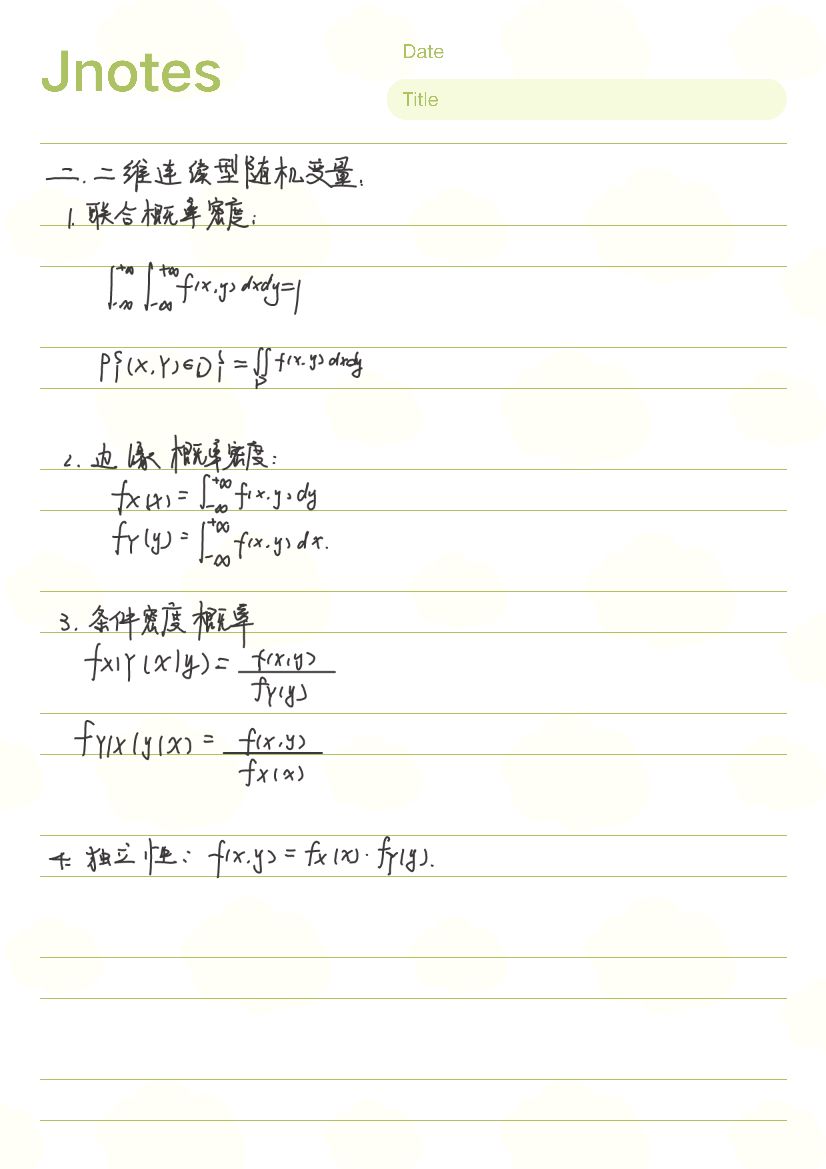 Jnotes
Date
Title
二.二维连续型随机变量:
1.联合概率密度:
∫_{-∞}^{+∞} ∫_{-∞}^{+∞} f(x,y) dxdy=1
P{(X,Y)∈D} = ∬_D f(x,y) dxdy
2.边缘概率密度:
f_X(x) = ∫_{-∞}^{+∞} f(x,y) dy
f_Y(y) = ∫_{-∞}^{+∞} f(x,y) dx.
3.条件密度概率
f_{X|Y}(x|y) = f(x,y) / f_Y(y)
f_{Y|X}(y|x) = f(x,y) / f_X(x)
4.独立性: f(x,y) = f_X(x)·f_Y(y).